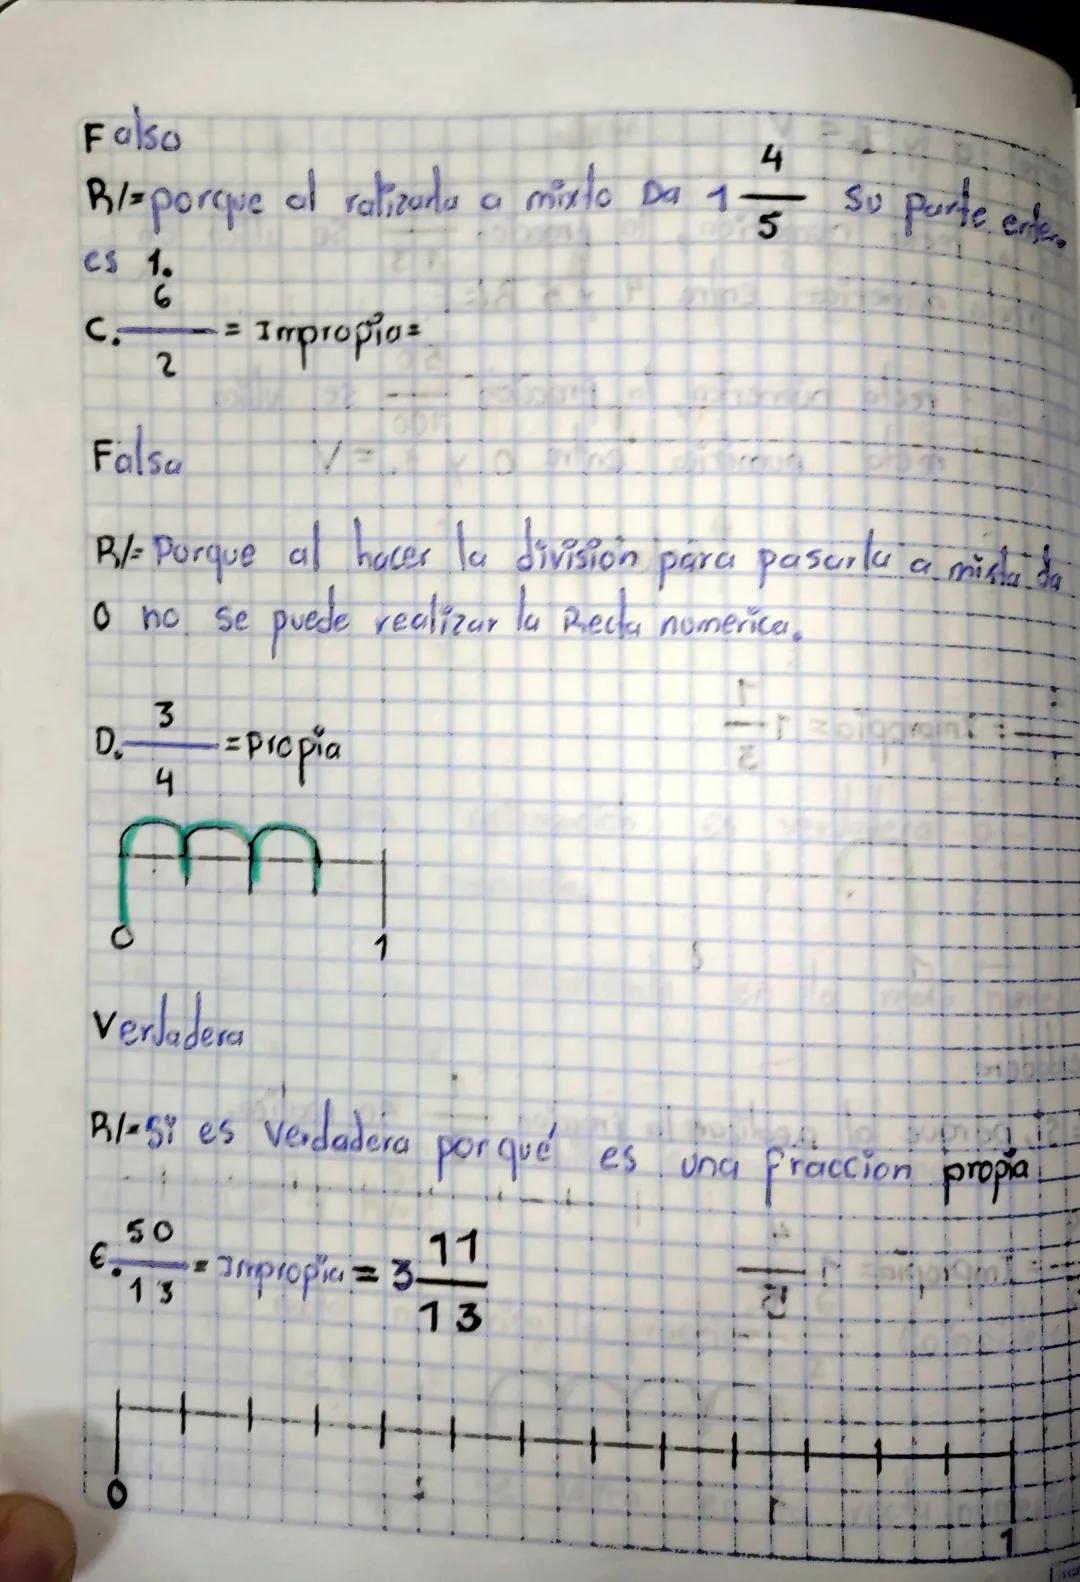 Falso
R/= porque al ralizarla a mixto Da 1 4/5 Su parte entera
es 1.
C. 6/2 = Impropia=
Falsa
R/= Porque al hacer la división para pasarla a mixta da
0 no se puede realizar la Recta numerica.
D. 3/4 = Propia
0 1
Verdadera
R/= Si es Verdadera porqué es una fraccion propia
E. 50/13 = Impropia = 3 11/13
0 1